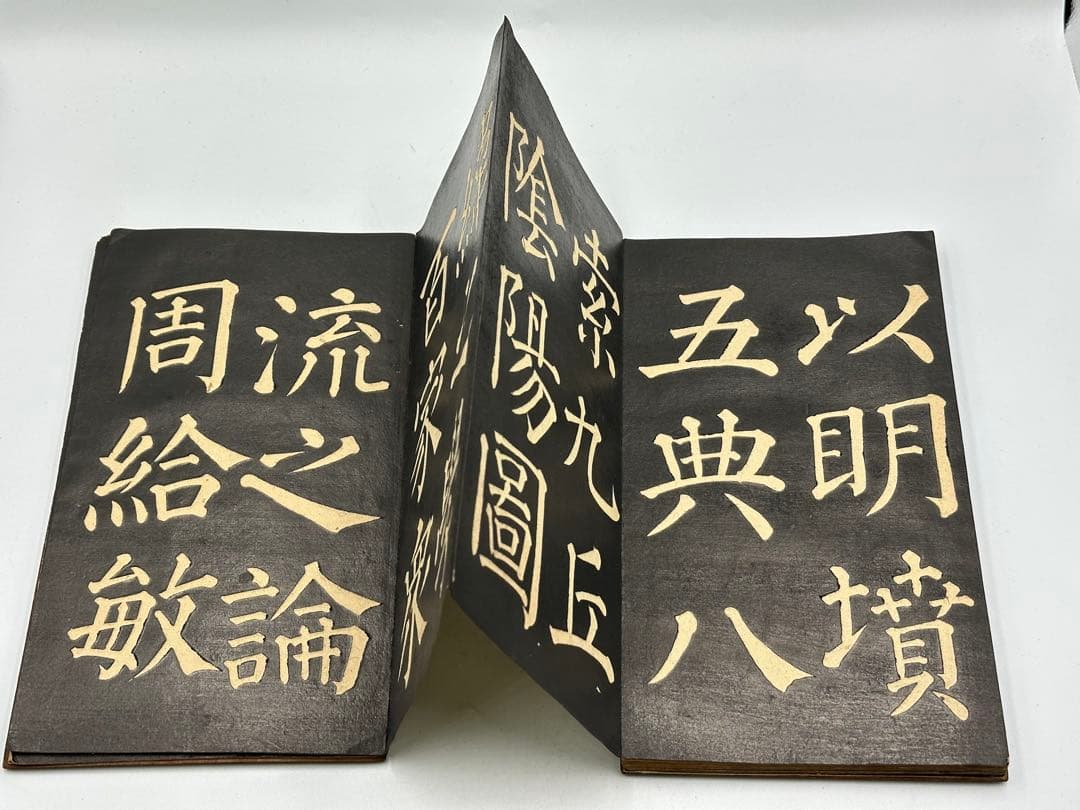 以明墳
五典八
索九丘
陰陽圖
百家衆
流之論
周給敏